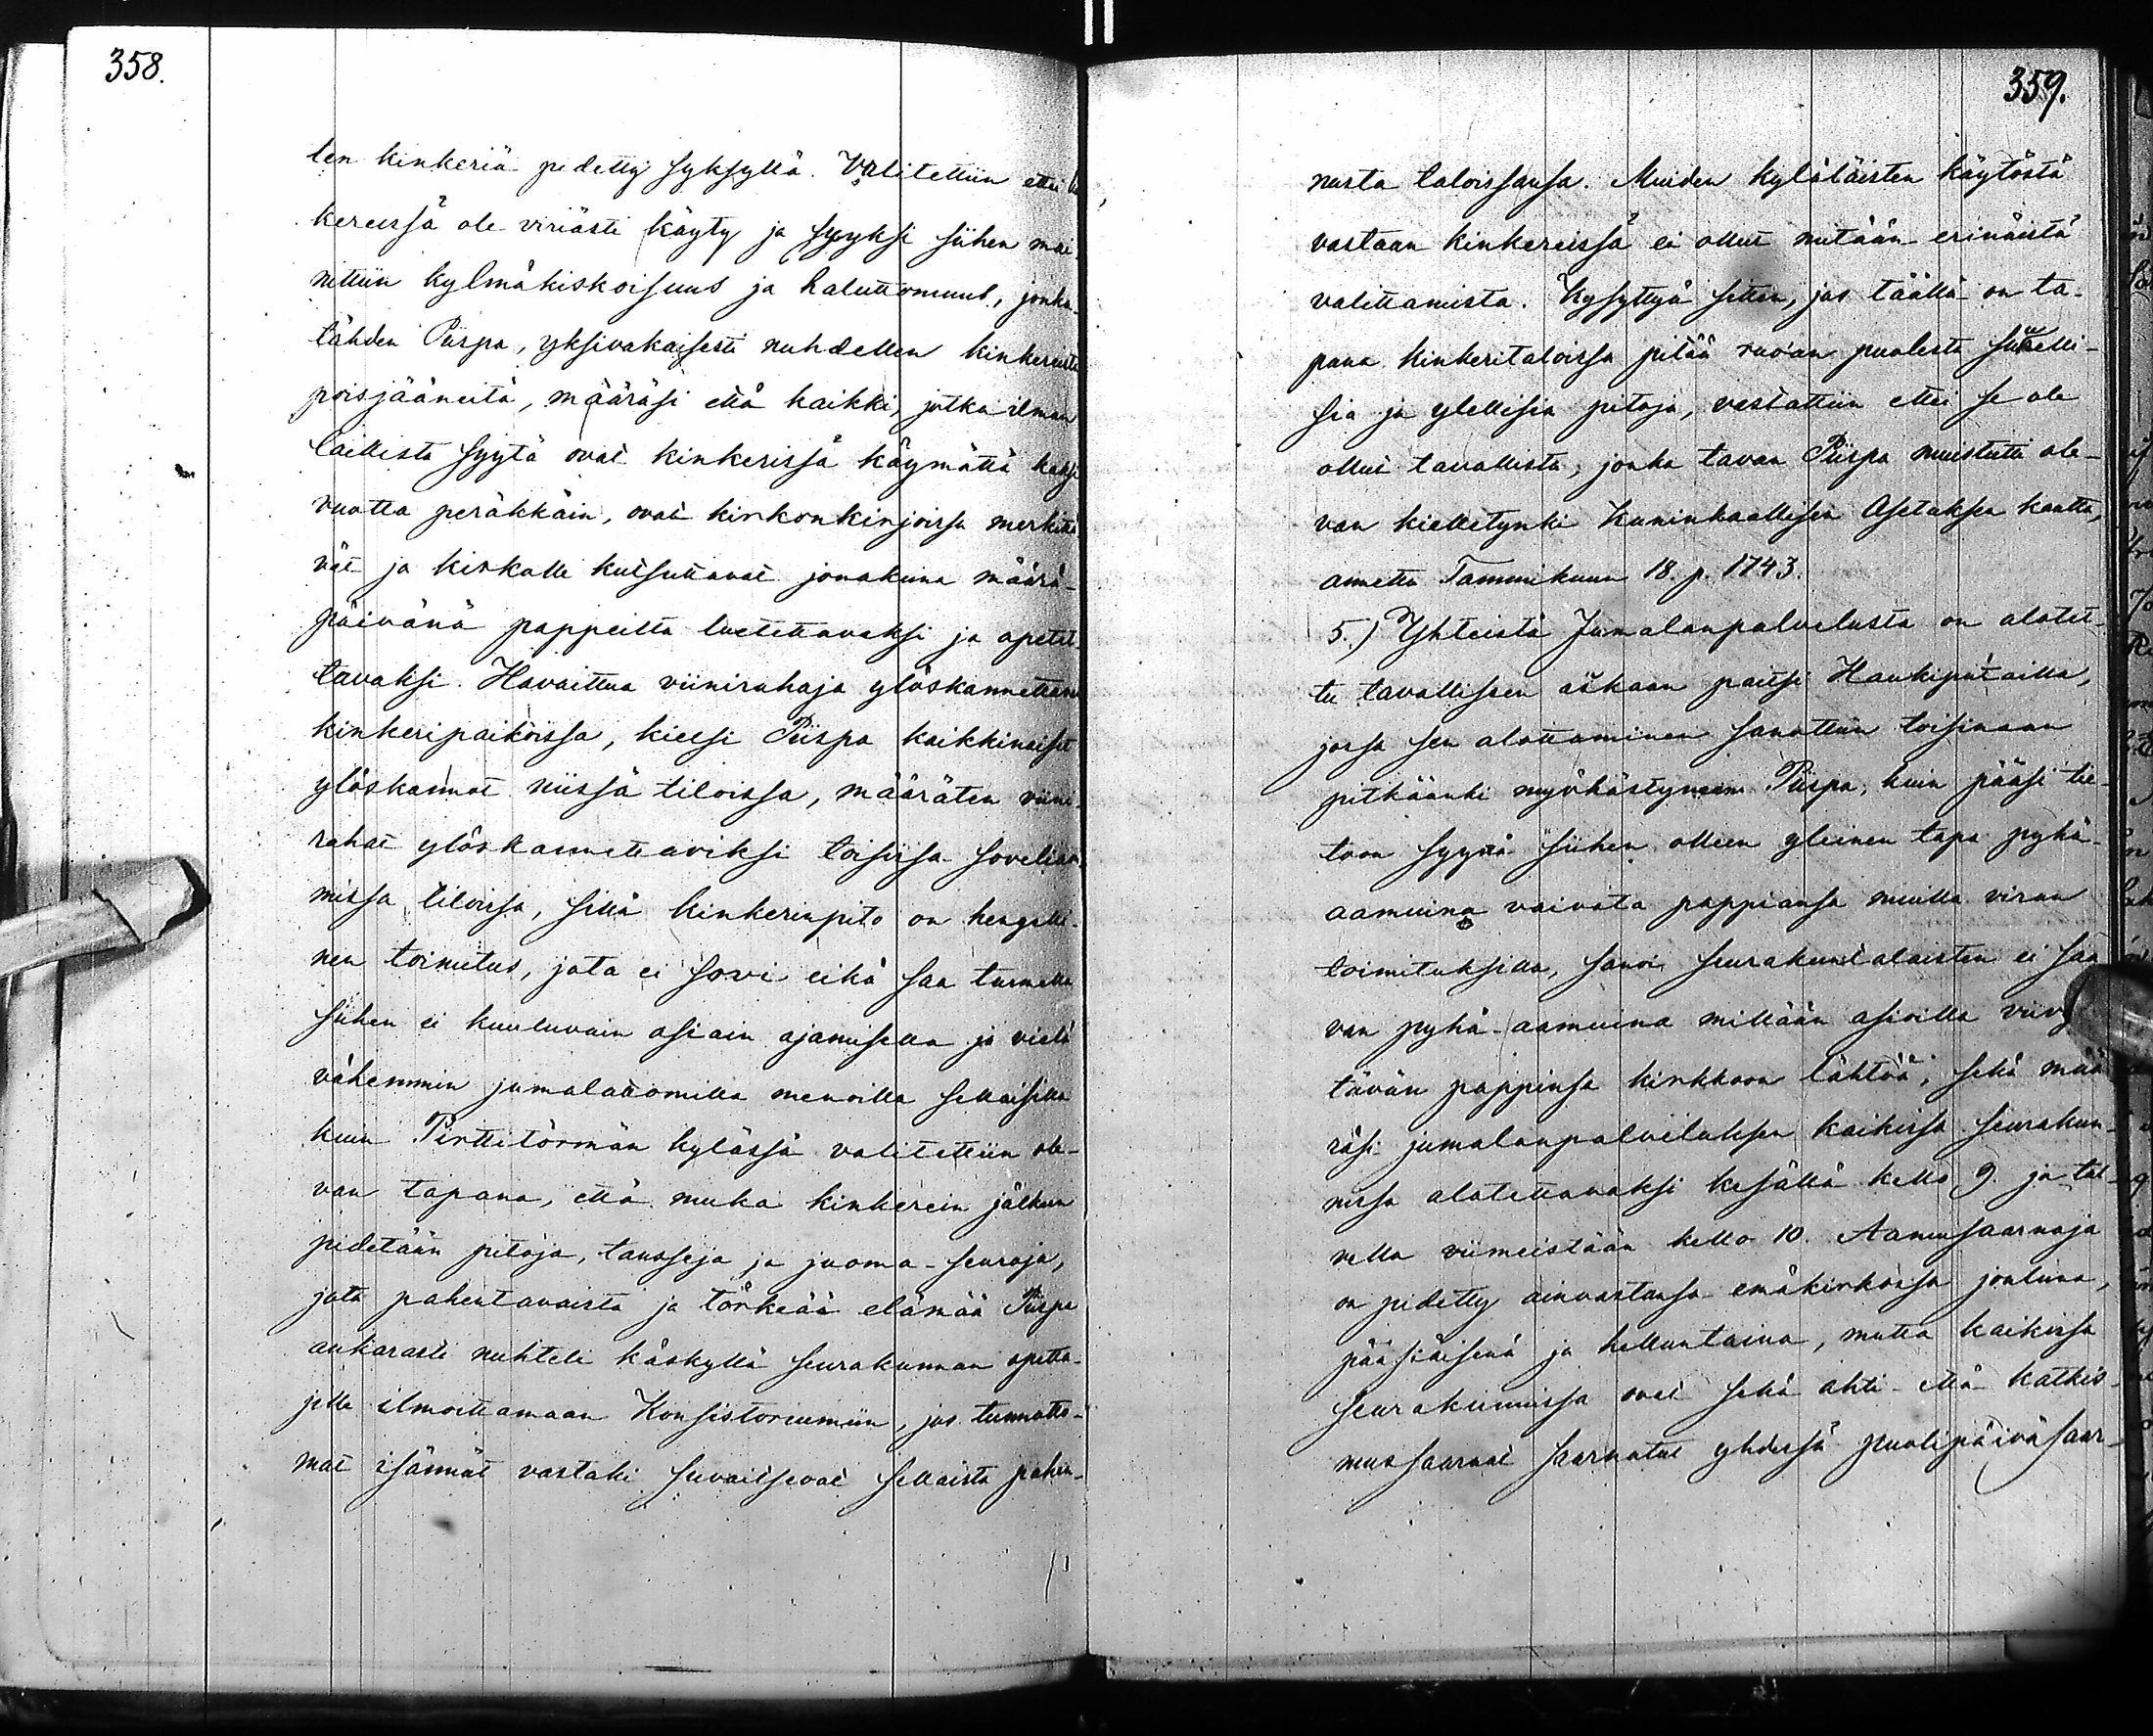 358.
ten kinkeriä pidetty syksyllä. Valitettiin ettei
kereissä ole viriästi käyty ja syyksi siihen mai-
nittiin kylmäkiskoisuus ja haluttomuus, jonka
tähden Piispa, yksivakaisesti nuhdellen kinkereistä
poisjääneitä, määräsi että kaikki, jotka ilman
laillista syytä ovat kinkerissä käymättä kaksi
vuotta peräkkäin, ovat kirkonkirjoissa merkittä-
vät ja kirkolle kutsuttavat jonakuna määrä-
päivänä pappeilta luetettavaksi ja opetet-
tavaksi. Havaittua viinirahoja ylöskannettavan
kinkeripaikoissa, kielsi Piispa kaikkinaiset
ylöskannot niissä tiloissa, määräten viini-
rahat ylöskannettaviksi toisissa soveliaam-
missa tiloissa, sillä kinkerinpito on hengelli-
nen toimitus, jota ei sovi eikä saa turmella
siihen ei kuuluvain asiain ajamisella ja vielä
vähemmin jumalattomilla menoilla sellaisilla
kuin Pirttitörmän kylässä valitettiin ole-
van tapana, että muka kinkerein jälkeen
pidetään pitoja, tansseja ja juoma-seuroja,
jota pahentavaista ja törkeää elämää Piispa
ankarasti nuhteli käskyllä seurakunnan opetta-
jille ilmoittamaan Konsistoriumiin, jos tunnotto-
mat isännät vastaki suvaitsevat sellaista pahen-
359.
nusta taloissansa. Muiden kyläläisten käytöstä
vastaan kinkereissä ei ollut mitään erinäistä
valittamista. Kysyttyä sitten, jos täällä on ta-
pana kinkeritaloissa pitää ruo'an puolesta
sia ja ylellisiä pitoja, vastattiin ettei se ole
ollut tavallista, jonka tavan Piispa muistutti ole-
van kielletynki Kuninkaallisen Asetuksen kautta,
annettu Tammikuun 18. p. 1743.
5.) Yhteistä Jumalanpalvelusta on alotet-
tu tavalliseen aikaan paitsi Haukiputailla,
jossa sen alottaminen sanottiin toisinaan
pitkäänki myöhästyneen. Piispa, kuin pääsi tie-
toon syynä siihen olleen yleinen tapa pyhä-
aamuina vaivata pappiansa muilla viran
toimituksilla, sanoi seurakuntalaisten ei saa-
van pyhä-aamuina millään asioilla viivy
tävän pappinsa kirkkoon lähtöä, sekä mää
räsi jumalanpalveluksen kaikissa seurakun-
nissa alotettavaksi kesällä kello 9. ja tal-
vella viimeistään kello 10. Aamusaarnoja
on pidetty ainoastansa emäkirkossa jouluna,
pääsiäisenä ja helluntaina, mutta kaikissa
seurakunnissa ovat sekä ahti- että katkis-
mussaarnat saarnatut yhdessä puolipäiväsaar-